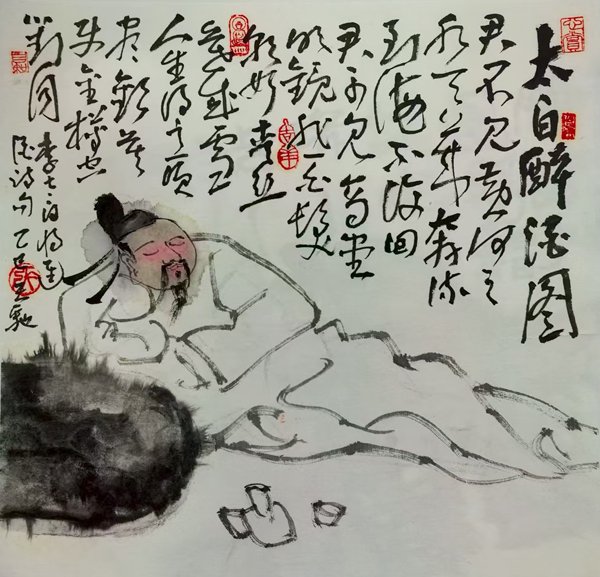 太白醉酒图
君不见黄河之
水天上来奔流
到海不復回
君不见高堂
明镜悲白髮
朝如青丝
暮成雪
人生得意须
尽歡莫
使金樽空
對月
李太白将进
酒诗句乙巳